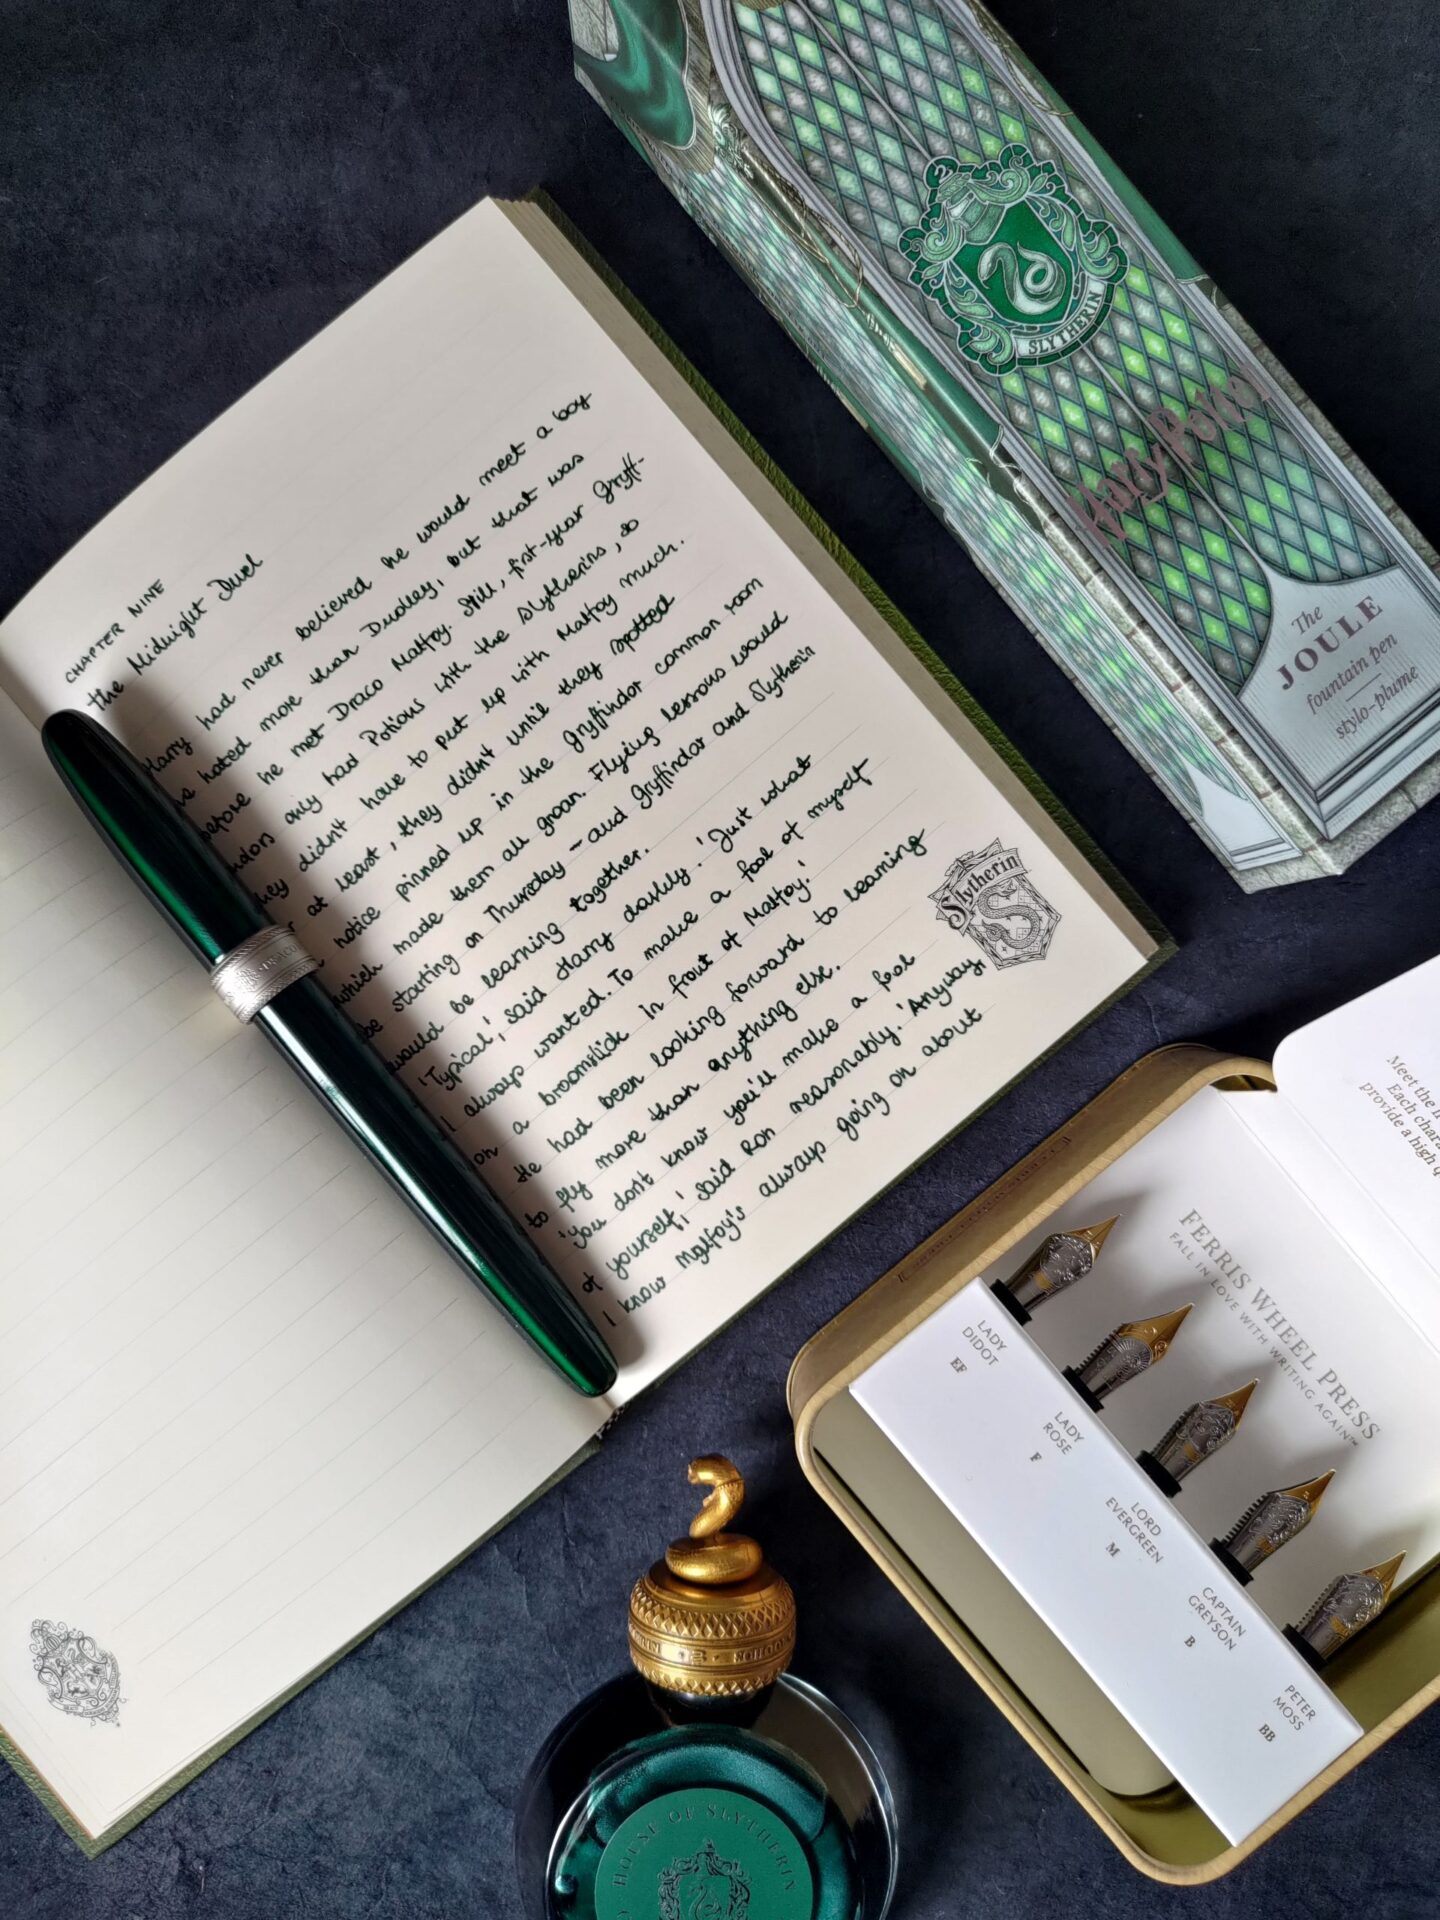 CHAPTER NINE
The Midnight Duel
Harry had never believed he would meet a boy
he hated more than Dudley, but that was
before he met Draco Malfoy. Still, first-year Gryff-
indors only had Potions with the Slytherins, so
they didn't have to put up with Malfoy much.
at least, they didn't until they spotted
notice pinned up in the Gryffindor common room
which made them all groan. Flying lessons would
be starting on Thursday - and Gryffindor and Slytherin
would be learning together.
'Typical,' said Harry darkly. 'Just what
I always wanted. To make a fool of myself
on a broomstick in front of Malfoy.'
He had been looking forward to learning
to fly more than anything else.
'You don't know you'll make a fool
of yourself,' said Ron reasonably. 'Anyway,
I know Malfoy's always going on about
Slytherin
SLYTHERIN
Harry Potter
The
JOULE
fountain pen
stylo-plume
Meet the
Each
provide a high
FERRIS WHEEL PRESS
FALL IN LOVE WITH WRITING AGAIN™
LADY
DIDOT
EF
LADY
ROSE
F
LORD
EVERGREEN
M
CAPTAIN
GREYSON
B
PETER
MOSS
BB
HOUSE OF SLYTHERIN